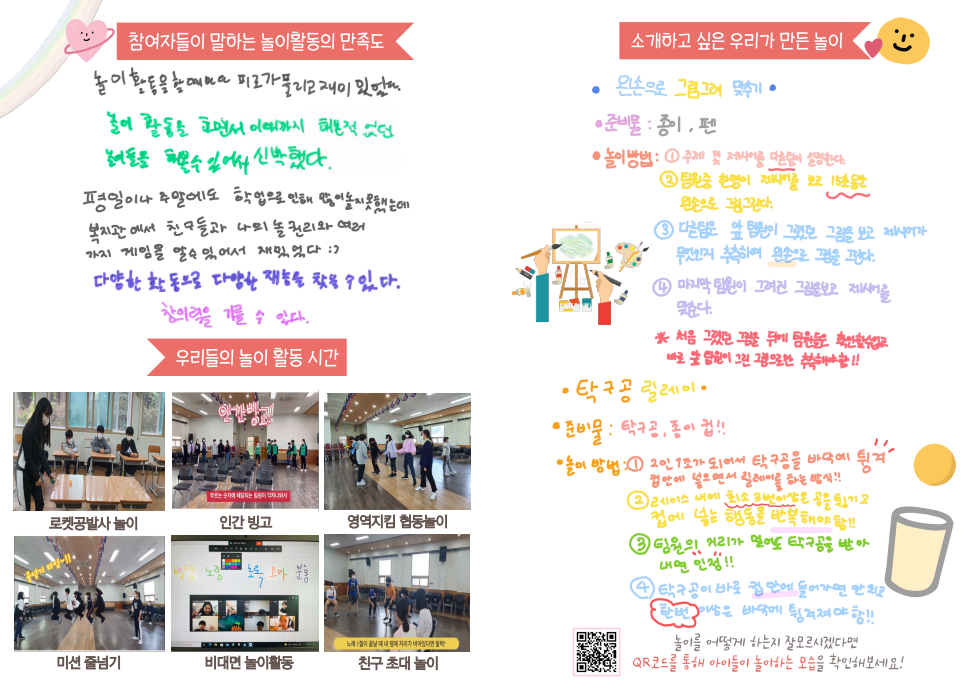 참여자들이 말하는 놀이활동의 만족도
놀이 활동을 할 때마다 피로가 풀리고 재미 있었다.
놀이 활동을 하면서 이때까지 해본적 없던
놀이들을 해볼수 있어서 신박했다.
평일이나 주말에도 학업으로 인해 많이 놀지 못했는데
복지관에서 친구들과 나의 놀 권리와 여러
가지 게임을 알 수 있어서 재밌었다 :)
다양한 활동으로 다양한 재능을 찾을 수 있다.
창의력을 기를 수 있다.
우리들의 놀이 활동 시간
인간빙고
부르는 숫자에 해당되는 팀원이 각자나와서
로켓공발사 놀이
인간 빙고
영역지킴 협동놀이
노랑 초록
노래 1절이 끝날 때 내 옆에 자리가 비어있다면 탈락!
미션 줄넘기
비대면 놀이활동
친구 초대 놀이
소개하고 싶은 우리가 만든 놀이
• 왼손으로 그림그려 맞추기 •
• 준비물 : 종이, 펜
• 놀이방법 : ① 주제 및 제시어를 다른팀이 설명한다.
② 팀원중 한명이 제시어를 보고 15초동안
왼손으로 그림그린다.
③ 다른팀도 앞 팀원이 그렸던 그림을 보고 제시어가
무엇인지 추측하여 왼손으로 그림을 그린다.
④ 마지막 팀원이 그려진 그림을보고 제시어를
맞춘다.
* 처음 그렸던 그림을 뒤에 팀원들도 확인할수없고
바로 앞 팀원이 그린 그림으로만 추측해야함!!
• 탁구공 릴레이 •
• 준비물 : 탁구공, 종이 컵!!
• 놀이 방법 : ① 2인 1조가 되어서 탁구공을 바닥에 튕겨
컵안에 넣으면서 릴레이를 하는 방식!!
② 레이스 내에 최소 3번이상은 공을 튕기고
컵에 넣는 행동을 반복해야 함!!
③ 팀원의 거리가 멀어도 탁구공을 받아
내면 인정!!
④ 탁구공이 바로 컵 안에 들어가면 안되고
한번 이상은 바닥에 튕겨져야 함!!
놀이를 어떻게 하는지 잘모르시겠다면
QR코드를 통해 아이들이 놀이하는 모습을 확인해보세요!